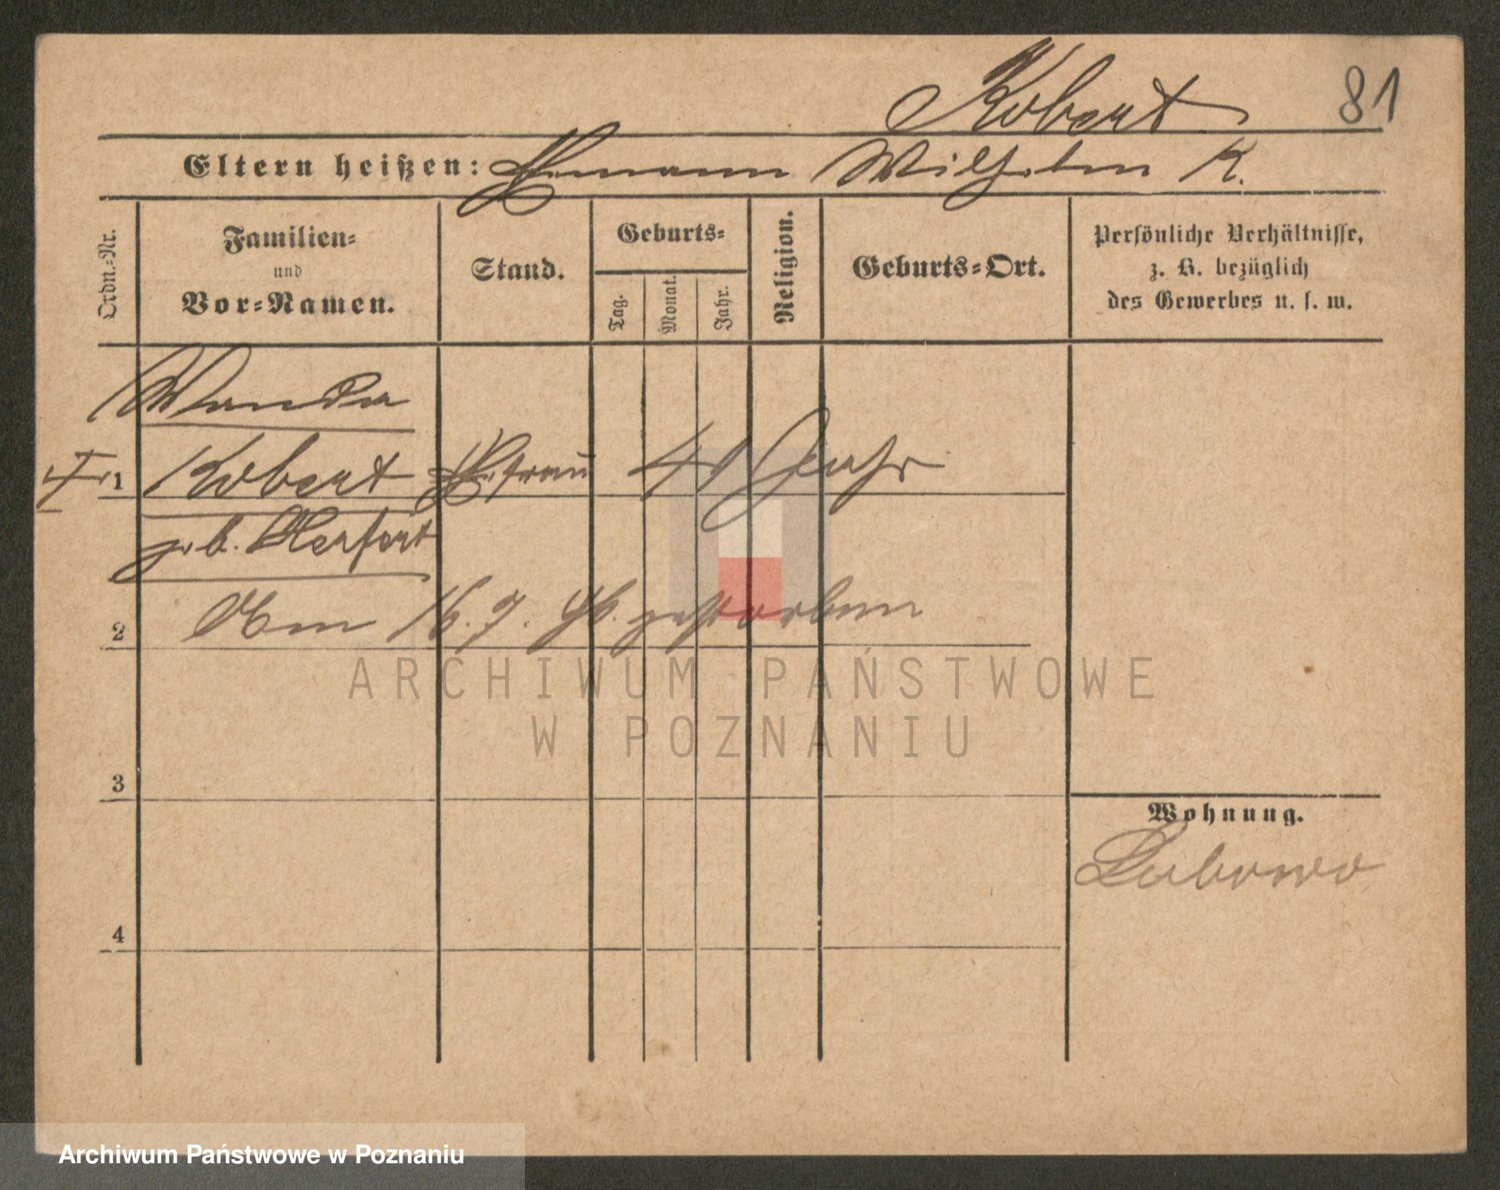 Kobert 81
Eltern heißen: Ehemann Wilhelm K.
Ordn.-Nr.
Familien-
und
Vor-Namen.
Stand.
Geburts-
Tag.
Monat.
Jahr.
Religion.
Geburts-Ort.
Persönliche Verhältnisse,
z. B. bezüglich
des Gewerbes u. s. w.
Wanda
1 Kobert Ehefrau 40 Jahr
geb. Herfert
2 Am 16. 7. gestorben
ARCHIWUM PAŃSTWOWE
W POZNANIU
3
Wohnung.
Lubowo
4
Archiwum Państwowe w Poznaniu